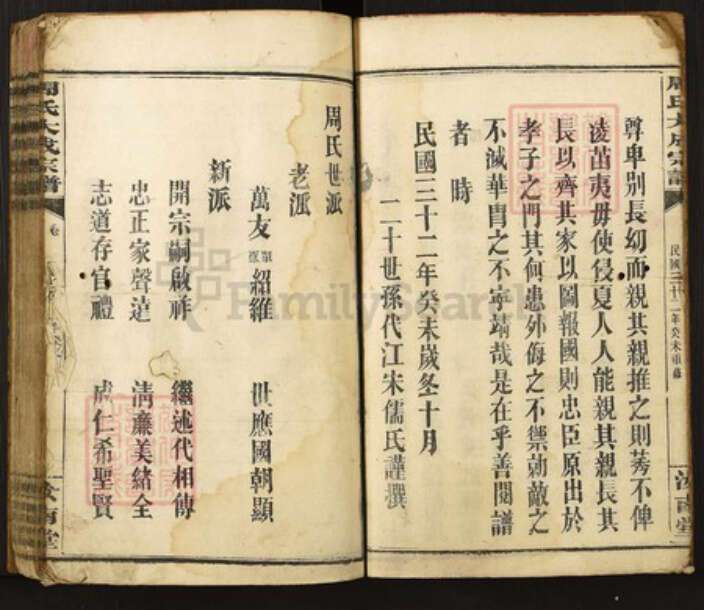 周氏大成宗譜
民國三十二年癸未重修
汝南堂
尊卑別長幼而親其親推之則莠不俾
淩苗夷毋使侵夏人人能親其親長其
長以齊其家以圖報國則忠臣原出於
孝子之門其何患外侮之不禦勍敵之
不滅華胄之不寧靖哉是在乎善閱譜
者時
民國三十二年癸未歲冬十月
二十世孫代江宋儒氏謹撰
周氏世派
老派
萬友單單紹維 世應國朝顯
新派
開宗嗣啟祥 繼述代相傳
忠正家聲達 清廉美緒全
志道存官禮 成仁希聖賢
周氏大成宗譜
卷
汝南堂
FamilySearch